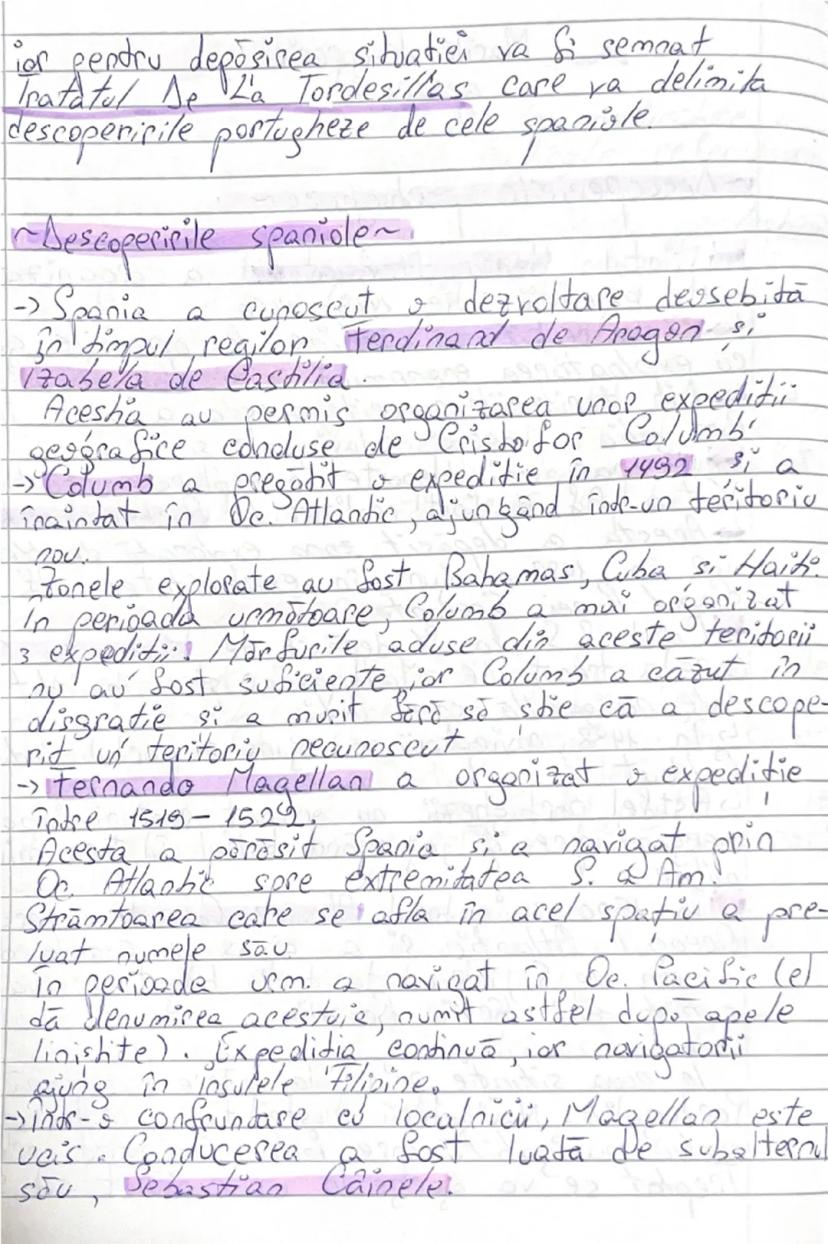 iar pentru depăsirea situatiei va fi semnat
Tratatul De La Tordesillas care va delimita
descoperirile portugheze de cele spaniole.
~Descoperirile spaniole~
-> Spania a cunoscut o dezvoltare deosebită
în timpul regilor Ferdinand de Aragon si
Izabela de Castilia.
Acestia au permis organizarea unor expeditii
geografice conduse de Cristofor Columb.
-> Columb a pregătit o expeditie în 1492 si a
înaintat în Oc. Atlantic, ajungând într-un teritoriu
nou.
Zonele explorate au fost Bahamas, Cuba si Haiti.
În perioada următoare, Columb a mai organizat
3 expeditii. Mărfurile aduse din aceste teritorii
nu au fost suficiente iar Columb a căzut în
disgratie si a murit fără să stie că a descope-
rit un teritoriu necunoscut
-> Fernando Magellan a organizat o expediție
între 1519 - 1522.
Acesta a părăsit Spania si a navigat prin
Oc. Atlantic spre extremitatea S. a Am.
Strâmtoarea care se afla în acel spațiu a pre-
luat numele său.
În perioada urm. a navigat în Oc. Pacific (el
dă denumirea acestuia, numit astfel după apele
linistite). Expeditia continuă, iar navigatorii
ajung în insulele Filipine.
-> într-o confruntare cu localnicii, Magellan este
ucis. Conducerea a fost luată de subalternul
său, Sebastian Câinele.